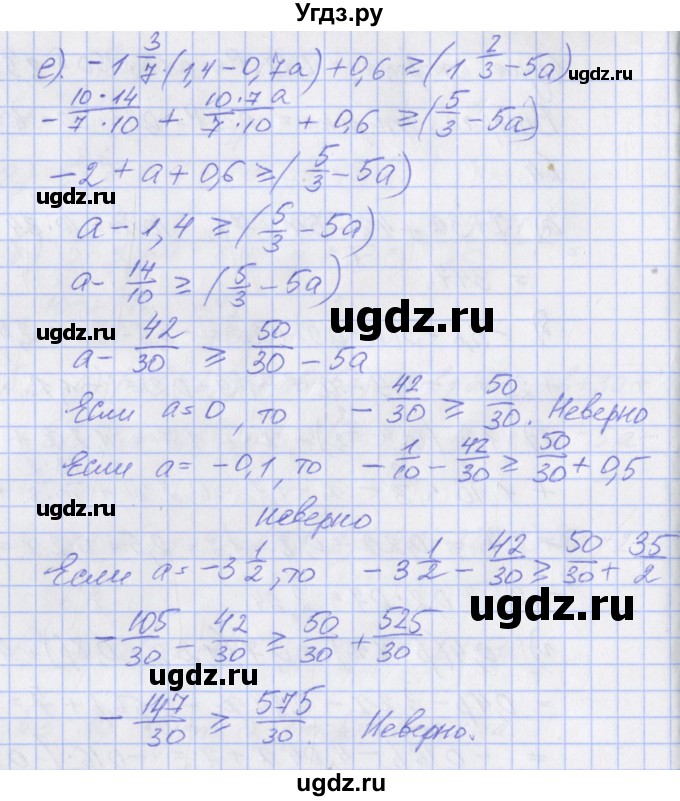 Угдз.ру
е). -1 3/7 · (1,4 - 0,7a) + 0,6 ≥ (1 2/3 - 5a)
ugdz.ru
- 10·14/7·10 + 10·7a/7·10 + 0,6 ≥ (5/3 - 5a)
-2 + a + 0,6 ≥ (5/3 - 5a)
ugdz.ru
a - 1,4 ≥ (5/3 - 5a)
a - 14/10 ≥ (5/3 - 5a)
ugdz.ru
ugdz.ru
a - 42/30 ≥ 50/30 - 5a
Если a = 0, то - 42/30 ≥ 50/30. Неверно
Если a = -0,1, то - 1/10 - 42/30 ≥ 50/30 + 0,5
ugdz.ru
неверно
Если a = -3 1/2, то -3 1/2 - 42/30 ≥ 50/30 + 35/2
ugdz.ru
- 105/30 - 42/30 ≥ 50/30 + 525/30
ugdz.ru
- 147/30 ≥ 575/30. Неверно.
ugdz.ru